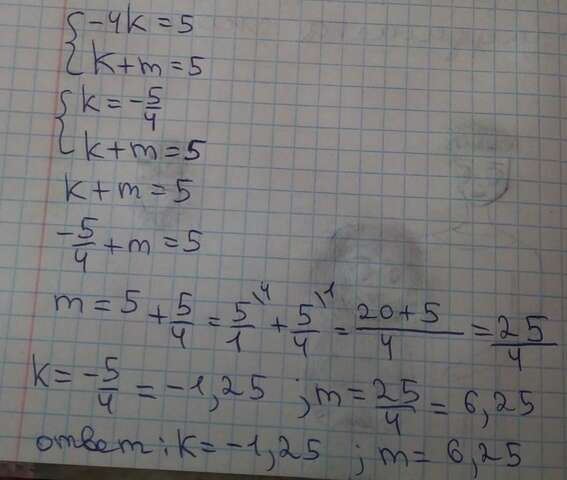 {-4k = 5
{k + m = 5
{k = -5/4
{k + m = 5
k + m = 5
-5/4 + m = 5
m = 5 + 5/4 = 5/1 \4 + 5/4 \1 = 20+5/4 = 25/4
k = -5/4 = -1,25 ; m = 25/4 = 6,25
ответ: k = -1,25 ; m = 6,25